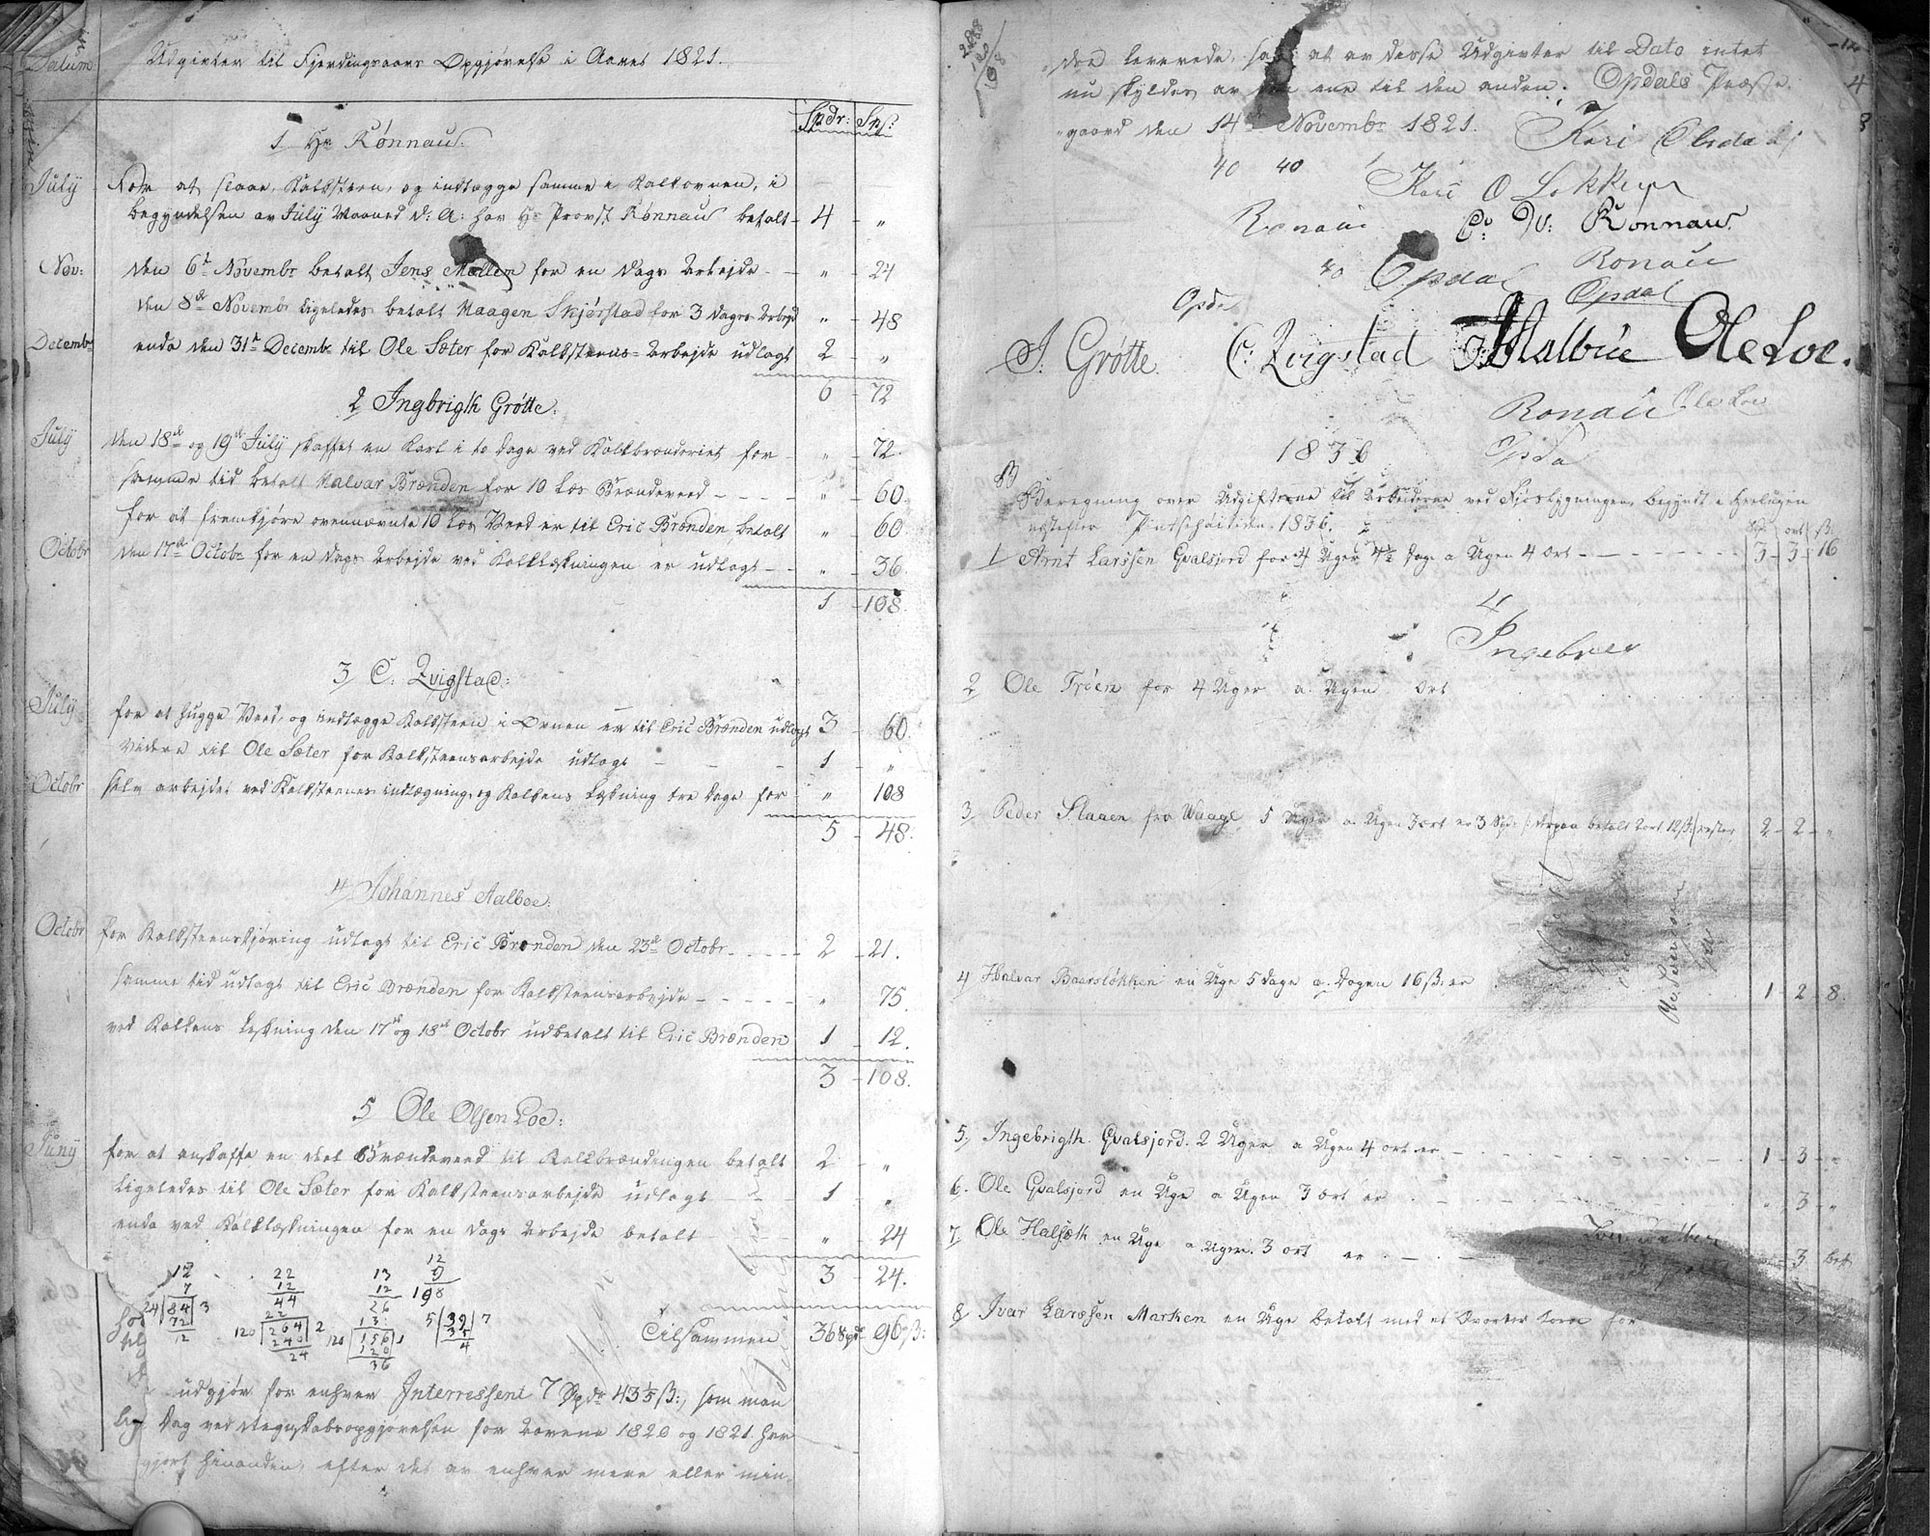 Datum
Udgivter til Fjerdingsaars Opgjørelse i Aaret 1821.
Spdr: Sk:
1 Hr Rønnau:
July For at slaae Kalksteen, og indlægge samme i Kalkovnen, i
begyndelsen av July Maaned d: A: har Hr Provst Rønnau betalt 4 - "
Nov: den 6te Novembr betalt Jens Mællem for en Dags Arbejde - " - 24
den 8de Novembr ligeledes betalt Haagen Skjørstad for 3 dages Arbejd " - 48
Decembr enda den 31te Decembr til Ole Sæter for Kalksteens-Arbejde udlagt 2 - "
6 - 72
2 Ingbrigth Grøtte:
July den 18de og 19de July skaffet en Karl i to dage ved Kalkbrænderiet for - " - 72.
samme tid betalt Halvar Brænden for 10 Læs Brændeveed - - - " - 60.
for at fremkjøre ovennævnte 10 Læs Veed er til Eric Brænden betalt " - 60
Octobr den 17de Octobr for en dags Arbejde ved Kalklæskningen er udlagt - " - 36.
1 - 108.
3 C: Qvigstad:
July for at hugge Veed, og indlægge Kalksteen i Ovnen er til Eric Brænden udlagt 3 - 60.
videre til Ole Sæter for Kalksteensarbejde udlagt - - - 1 - "
Octobr selv arbejdet ved Kalksteenes indlægning, og Kalkens Læskning tre dage for " 108
5 - 48.
4 Johannes Aalboe:
Octobr for Kalksteenskjøring udlagt til Eric Brænden den 23de Octobr - - - 2 - 21.
samme tid udlagt til Eric Brænden for Kalksteensarbejde - - - - " 75.
ved Kalkens Læskning den 17de og 18de Octobr udbetalt til Eric Brænden 1 - 12.
3 - 108.
5 Ole Olsen Loe:
Juny for at anskaffe en deel Brændeveed til Kalkbrændingen betalt 2 - "
ligeledes til Ole Sæter for Kalksteensarbejde udlagt - - 1 - "
enda ved Kalklæskningen for en dags Arbejde betalt - - " - 24
3 - 24.
12 22 13 12
7 12 12 9
24 84 3 44 26 108
72 22 13 5 39 7
12 120 264 2 120 156 1 35
240 120 4
24 36
Tilsammen 36 spdr 96 ß:
udgjør for enhver Interressent 7 Spdr 43 1/5 ß:, som man
Dag ved Regnskabsopgjørelsen for Aarene 1820 og 1821 har
gjort hinanden, efter det av enhver mere eller min-
288
120
dre leverede, saa at av disse Udgivter til Dato intet
nu skyldes av den ene til den anden. Opdals Præste-
gaard den 14de Novembr 1821.
Kari
40 40
Kari O Løkken
Ronaü C: W: Rønnau.
40 Opdal Ronaü
Opda Opdal
I. Grøtte. C: Qvigstad Aalbüe Ole Loe.
Ronaü Ole Loe
1836 Opda
Beregning over Udgifterne til Arbeiderne ved Fjosbygningen, begyndt i Helugen
næstefter Pintsehøitiden 1836.
Spd ort ß.
1 Arnt Larssen Gvalsjord for 4 Uger 4½ Dag a Ugen 4 Ort - - - 3 - 3 - 16
4
Ingebrer
2 Ole Trøen for 4 Uger a Ugen Ort
3 Peder Slaaen fra Waage 5 Uger a Ugen 3 ort er 3 Spd betalt 2 ort 12 ß rester 2 - 2 - "
4 Halvar Baarsløkken en Uge 5 dage a Dagen 16 ß. er 1 - 2 - 8.
5, Ingebrigth Gvalsjord 2 Uger a Ugen 4 ort er - - - 1 - 3 - "
6. Ole Gvalsjord en Uge a Ugen 3 ort er - - - " 3 - "
7 Ole Halsæth en Uge a Ugen 3 ort er - - - 3 bet
8 Ivar Larssen Marken en Uge betalt med et Qvarter Korn for